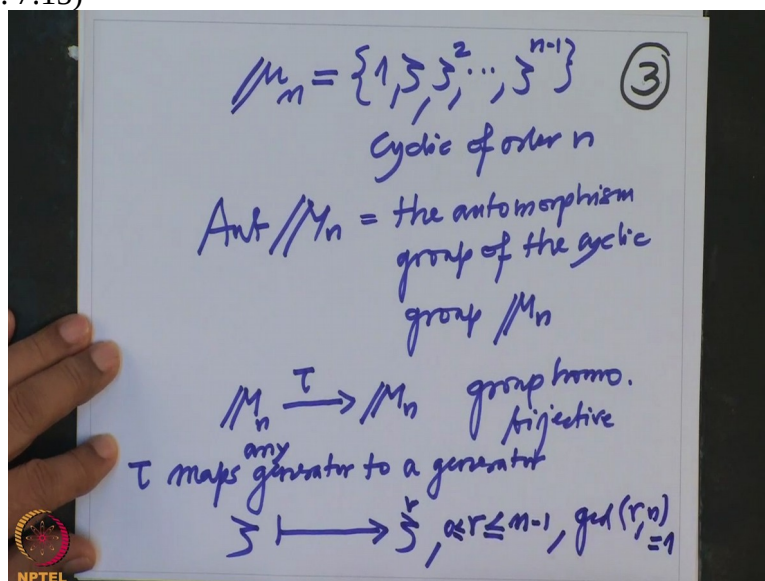 : 7:13)
μ_n = {1, ζ, ζ^2, ..., ζ^{n-1}}
3
Cyclic of order n
Aut μ_n = the automorphism
group of the cyclic
group μ_n
μ_n —τ→ μ_n group homo.
bijective
any
τ maps generator to a generator
ζ ↦ ζ^r, 0≤r≤n-1, gcd(r,n)
=1
NPTEL